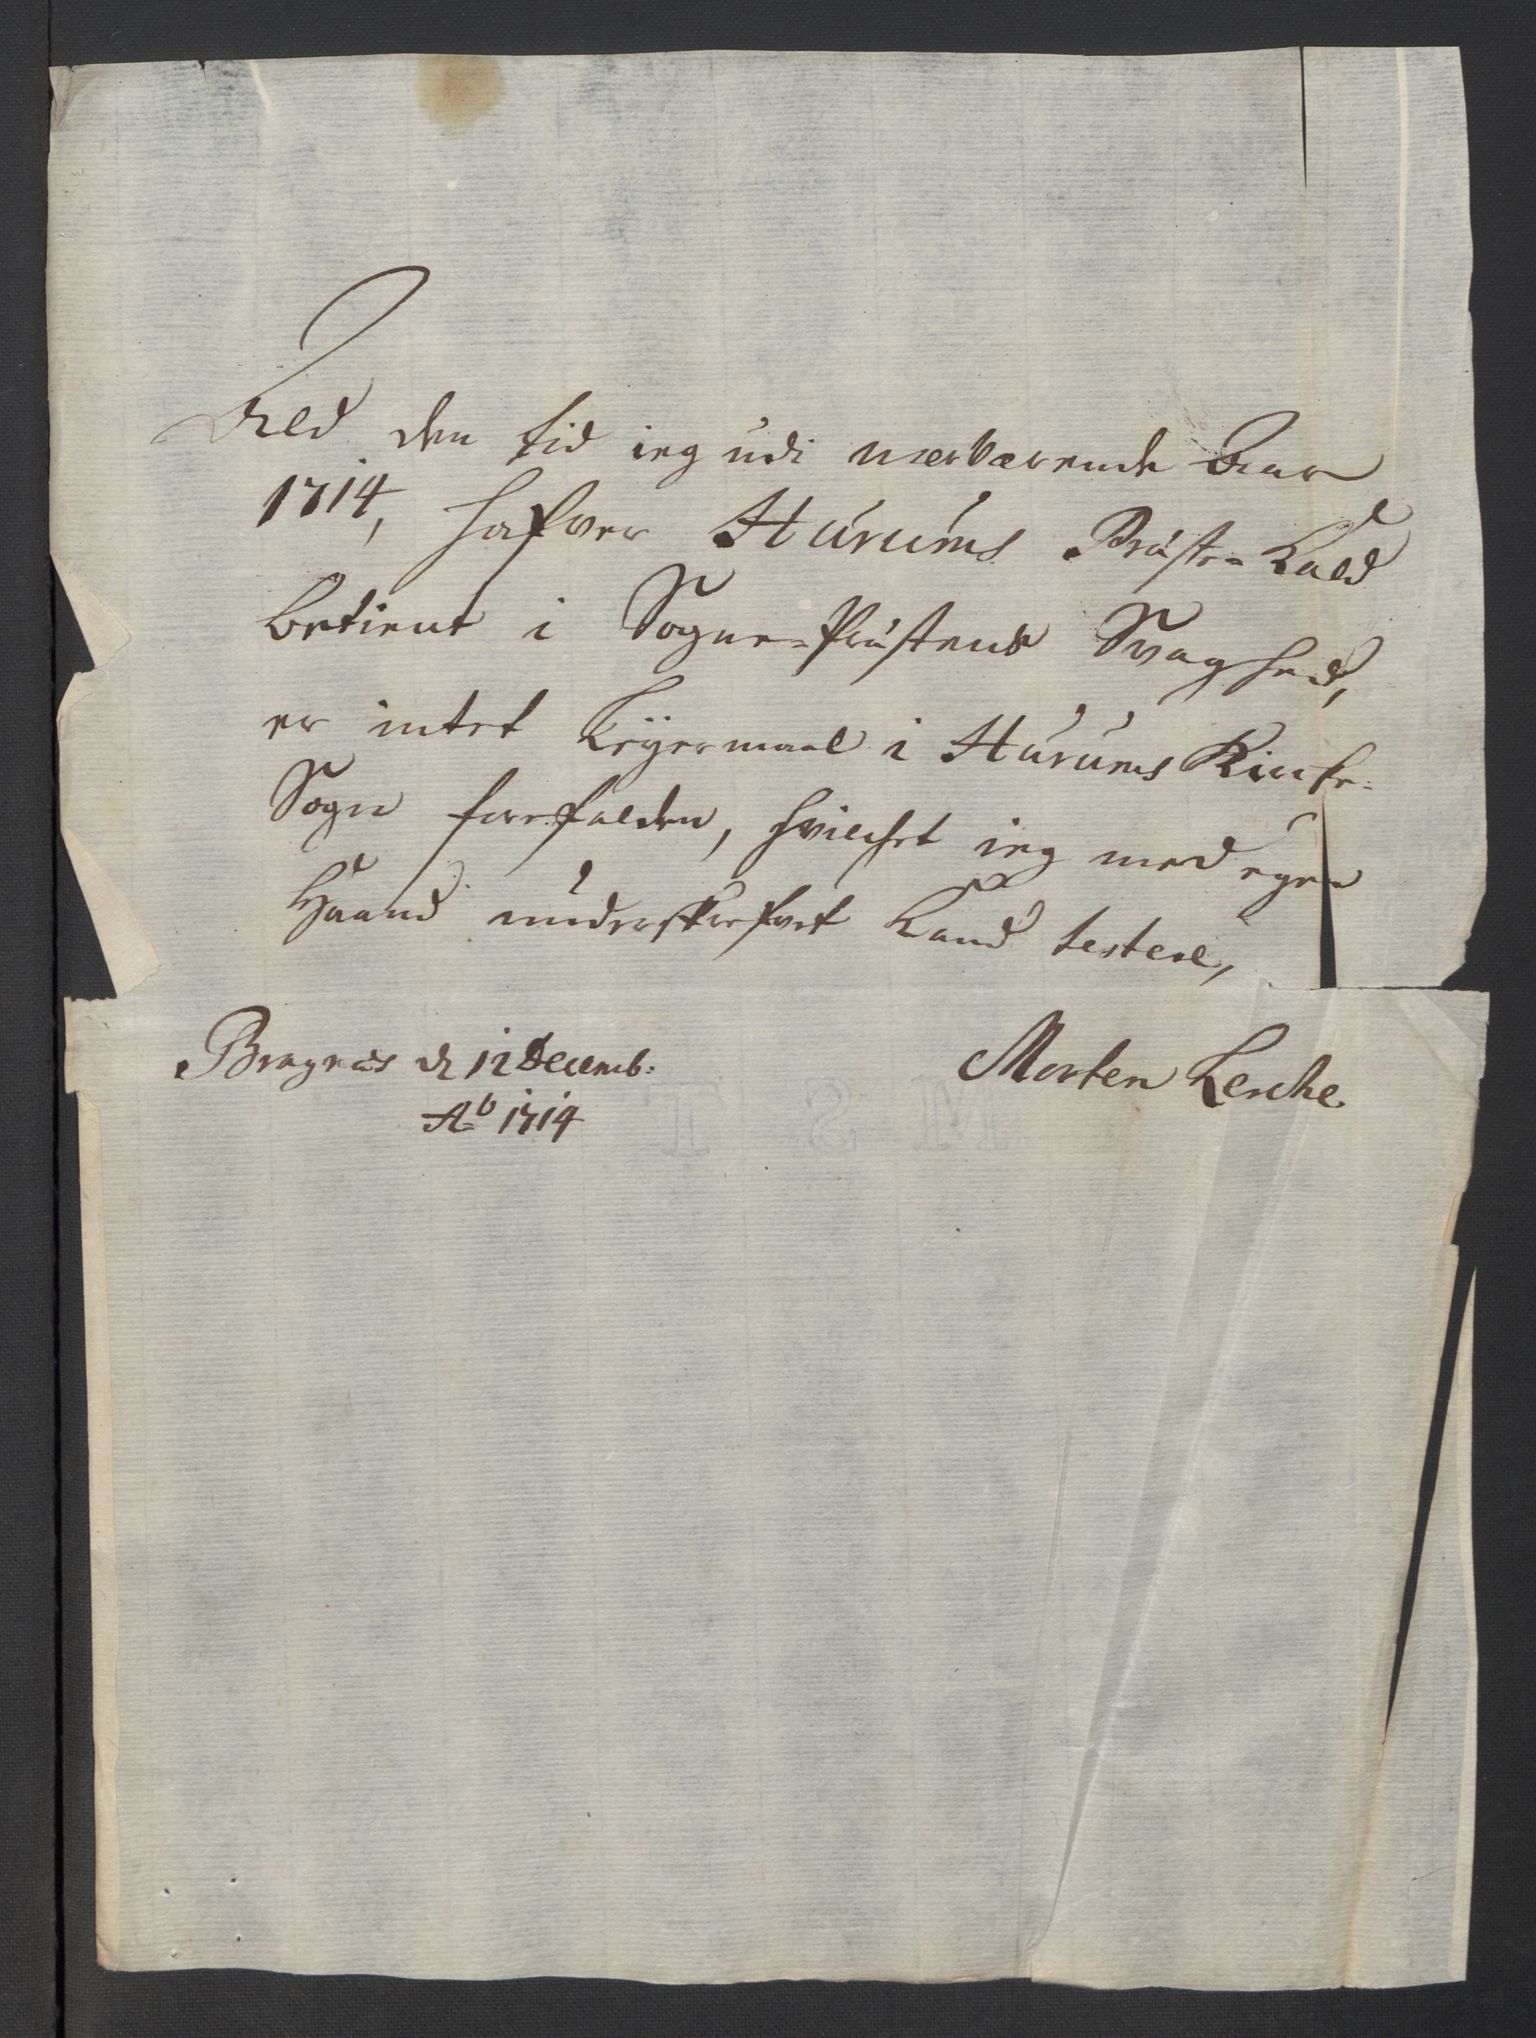 Ald den tid ieg udi nærværende Aar
1714, hafver Hurums Præste-Kald
betient i Sogne-Præstens Svaghed,
er intet Leyermaal i Hurums Kircke-
Sogn forefalden, hvilchet ieg med egen
Haand underskrefvet Kand testere,
Bragnæs d 12 Decemb:
Morten Lerche.
Aº 1714